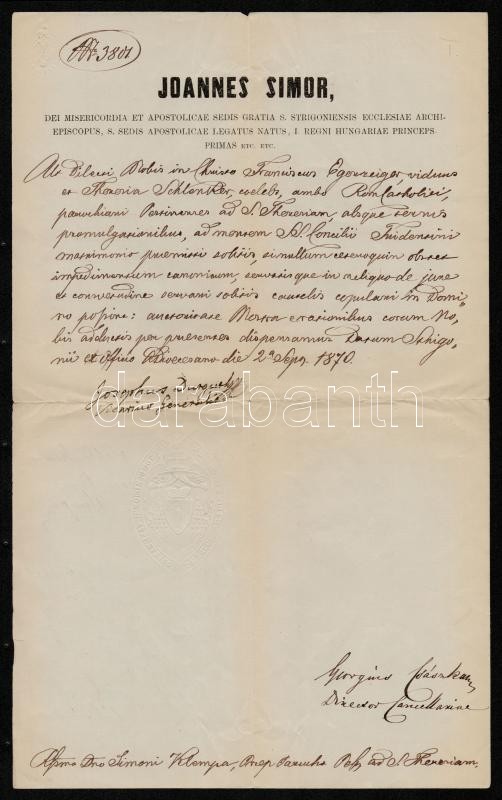 3801
JOANNES SIMOR,
DEI MISERICORDIA ET APOSTOLICAE SEDIS GRATIA S. STRIGONIENSIS ECCLESIAE ARCHI-
EPISCOPUS, S. SEDIS APOSTOLICAE LEGATUS NATUS, I. REGNI HUNGARIAE PRINCEPS-
PRIMAS ETC. ETC.
Ut Dilecti Nobis in Christo Franciscus viduus
et Theresia coelebs, ambo Rom. Catholici,
parochiani Pestinenses ad S. Theresiam, absque ternis
promulgationibus, ad mentem SS. Concilii Tridentini
matrimonio praemitti solitis, si nullum ceteroquin obstet
impedimentum canonicum, servatisque in reliquo de jure
et consvetudine servari solitis cautelis copulari in Domi-
no possint: authoritate Nostra e rationibus coram No-
bis adductis per praesentes dispensamus. Datum Strigo-
nii ex Officio Dioecesano die 2a Sept. 1870.
Josephus
Vicarius Generalis
darabanth
Georgius Császka
Director Cancellariae
Dno Simoni Klempa, Parocho Pest. ad S. Theresiam.